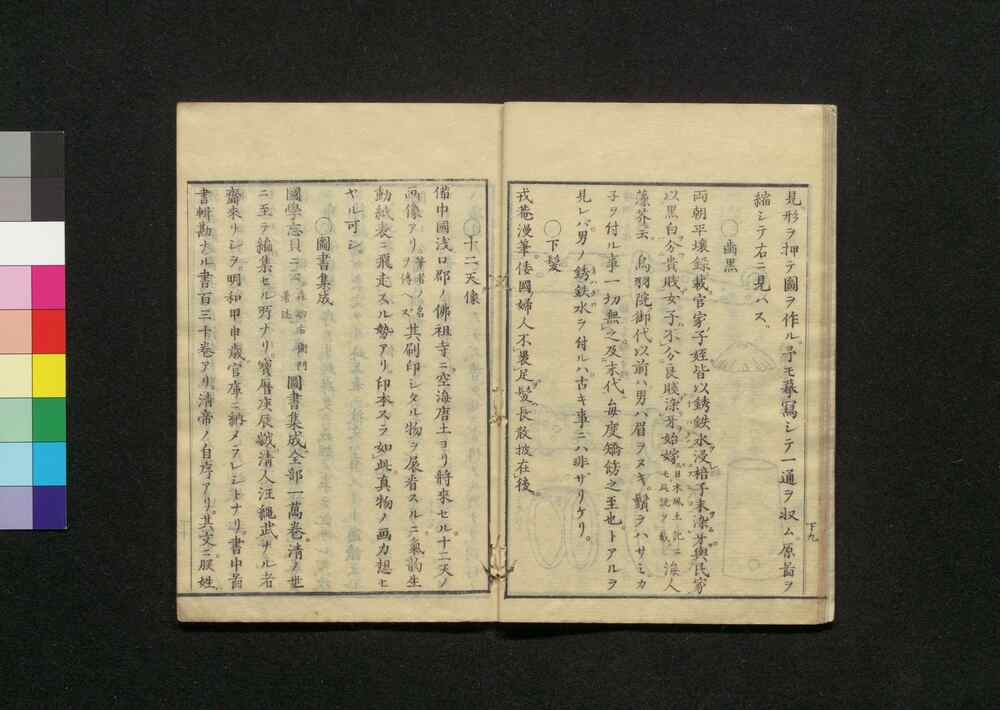 見形ヲ押テ圖ヲ作ル予モ摹寫シテ一通ヲ収ム原畐ヲ
縮シテ右ニ見ハス
○歯黒
両朝平壌録載官家子姪皆以銹鉄水浸棓子末染牙與民家
以黒白分貴賎女子不分良賎染牙始嫁
日本風土記ニ
モ此説ヲ載ス
漢人
藻芥云鳥羽院御代以前ハ男ハ眉ヲヌキ鬚ヲハサミカ
子ヲ付ル事一切無之及末代毎度矯餝之至也トアルヲ
見レバ男ノ銹鉄水ヲ付ルハ古キ事ニハ非サリケリ
○下髪
戎菴漫筆倭國婦人不畏足髪長散披在後
○十二天像
備中國浅口郡ノ佛祖寺ニ空海唐土ヨリ將來セル十二天ノ
画像アリ
筆者ノ名
ヲ傳ヘズ
其刷印シタル物ヲ展看スルニ氣韵生
動紙表ニ飛走スル勢アリ印本スラ如此真物ノ画力想ヒ
ヤル可シ
○圖書集成
國學忘貝ニ
著述
圖書集成全部一萬巻清ノ世
ニ至テ編集セル所ナリ寳暦庚辰歳清人汪縄武ナル者
齎來リシヲ明和甲申歳官庫ニ納メラレシトナリ書中畐
書輯勘ナル書百三十巻アリ清帝ノ自序アリ其文ニ朕姓
下九